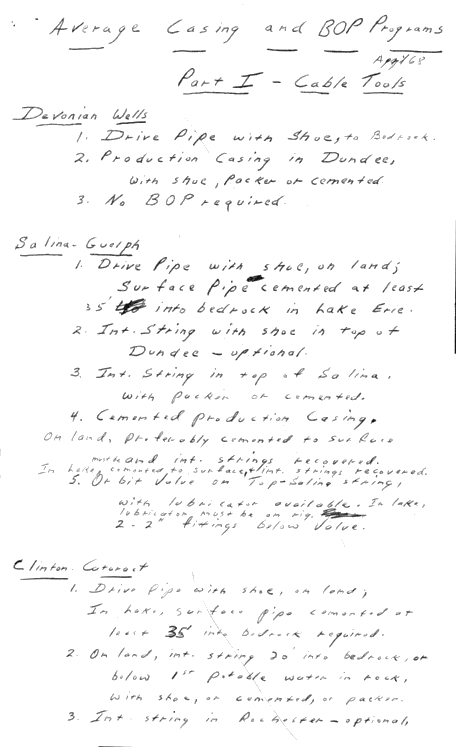 Average Casing and BOP Programs
Apr/68
Part I - Cable Tools
Devonian Wells
1. Drive Pipe with Shoe, to Bedrock.
2. Production Casing in Dundee,
with shoe, Packer or cemented.
3. No BOP required.
Salina-Guelph
1. Drive Pipe with shoe, on land;
Surface Pipe cemented at least
35' into bedrock in Lake Erie.
2. Int. String with shoe in top of
Dundee - optional.
3. Int. String in top of Salina,
with packer or cemented.
4. Cemented Production Casing.
On land, preferably cemented to surface
and int. strings recovered.
In Lake, cemented to surface, + int. strings recovered.
5. Orbit Valve on Top-Salina string,
with lubricator available. In lake,
lubricator must be on rig.
2 - 2" fittings below Valve.
Clinton-Cataract
1. Drive Pipe with shoe, on land;
In Lake, surface pipe cemented at
least 35' into bedrock required.
2. On land, int. string 20' into bedrock, or
below 1st potable water in rock,
with shoe, or cemented, or packer.
3. Int. string in Rochester - optional,